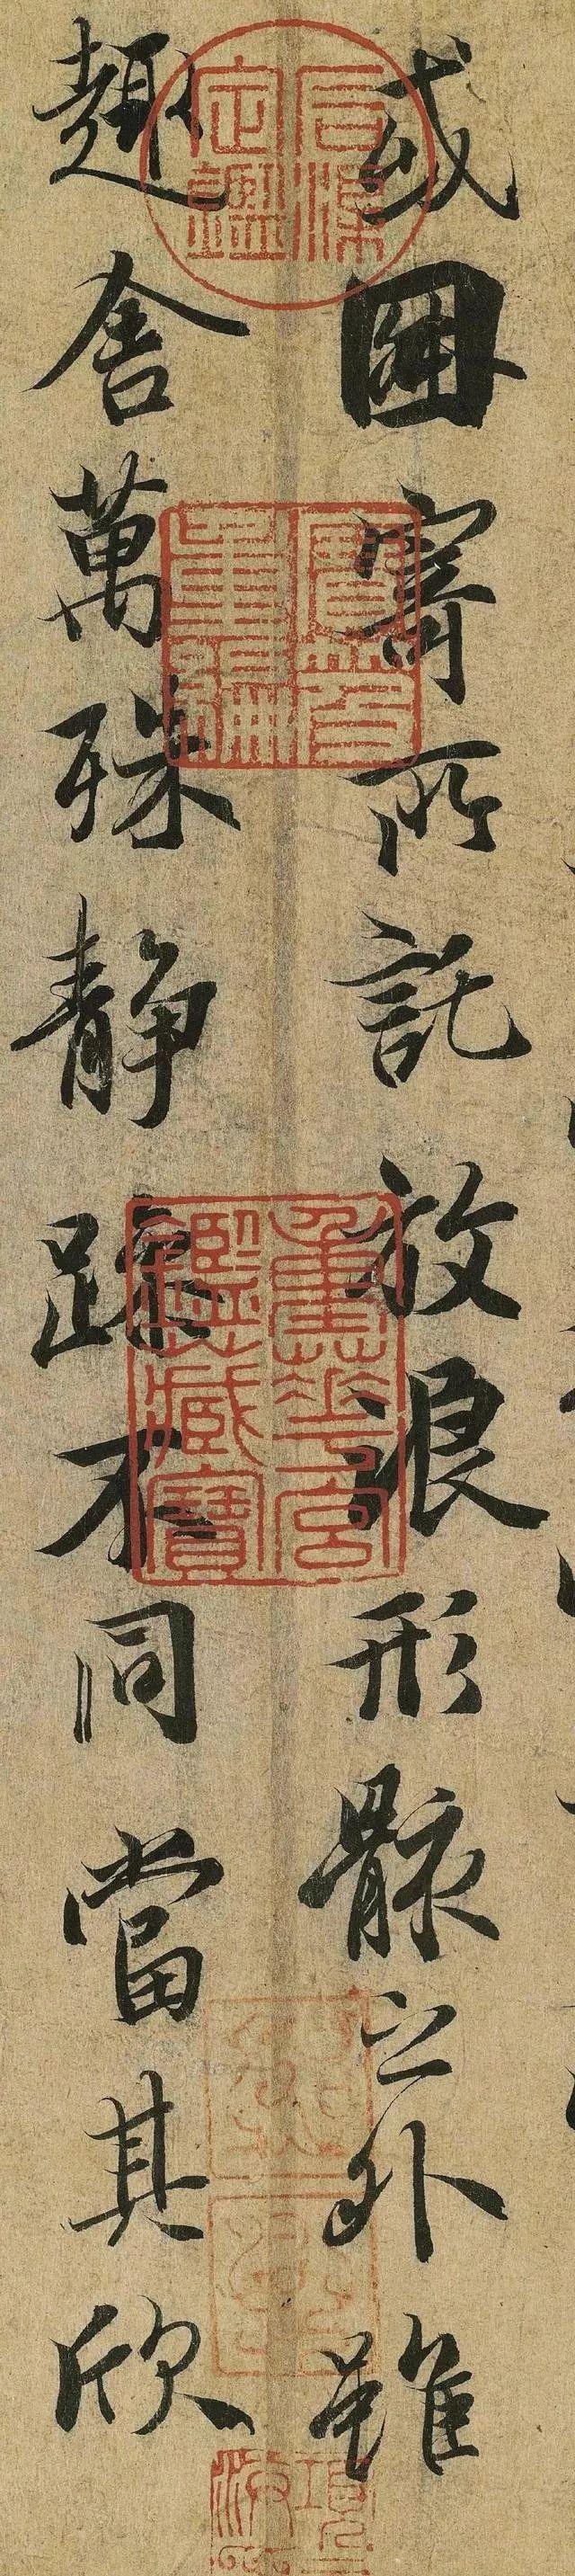 或因寄所託放浪形骸之外雖
趣舍萬殊靜躁不同當其欣
石渠定鑑
寶笈重編
重華宮鑑藏寶